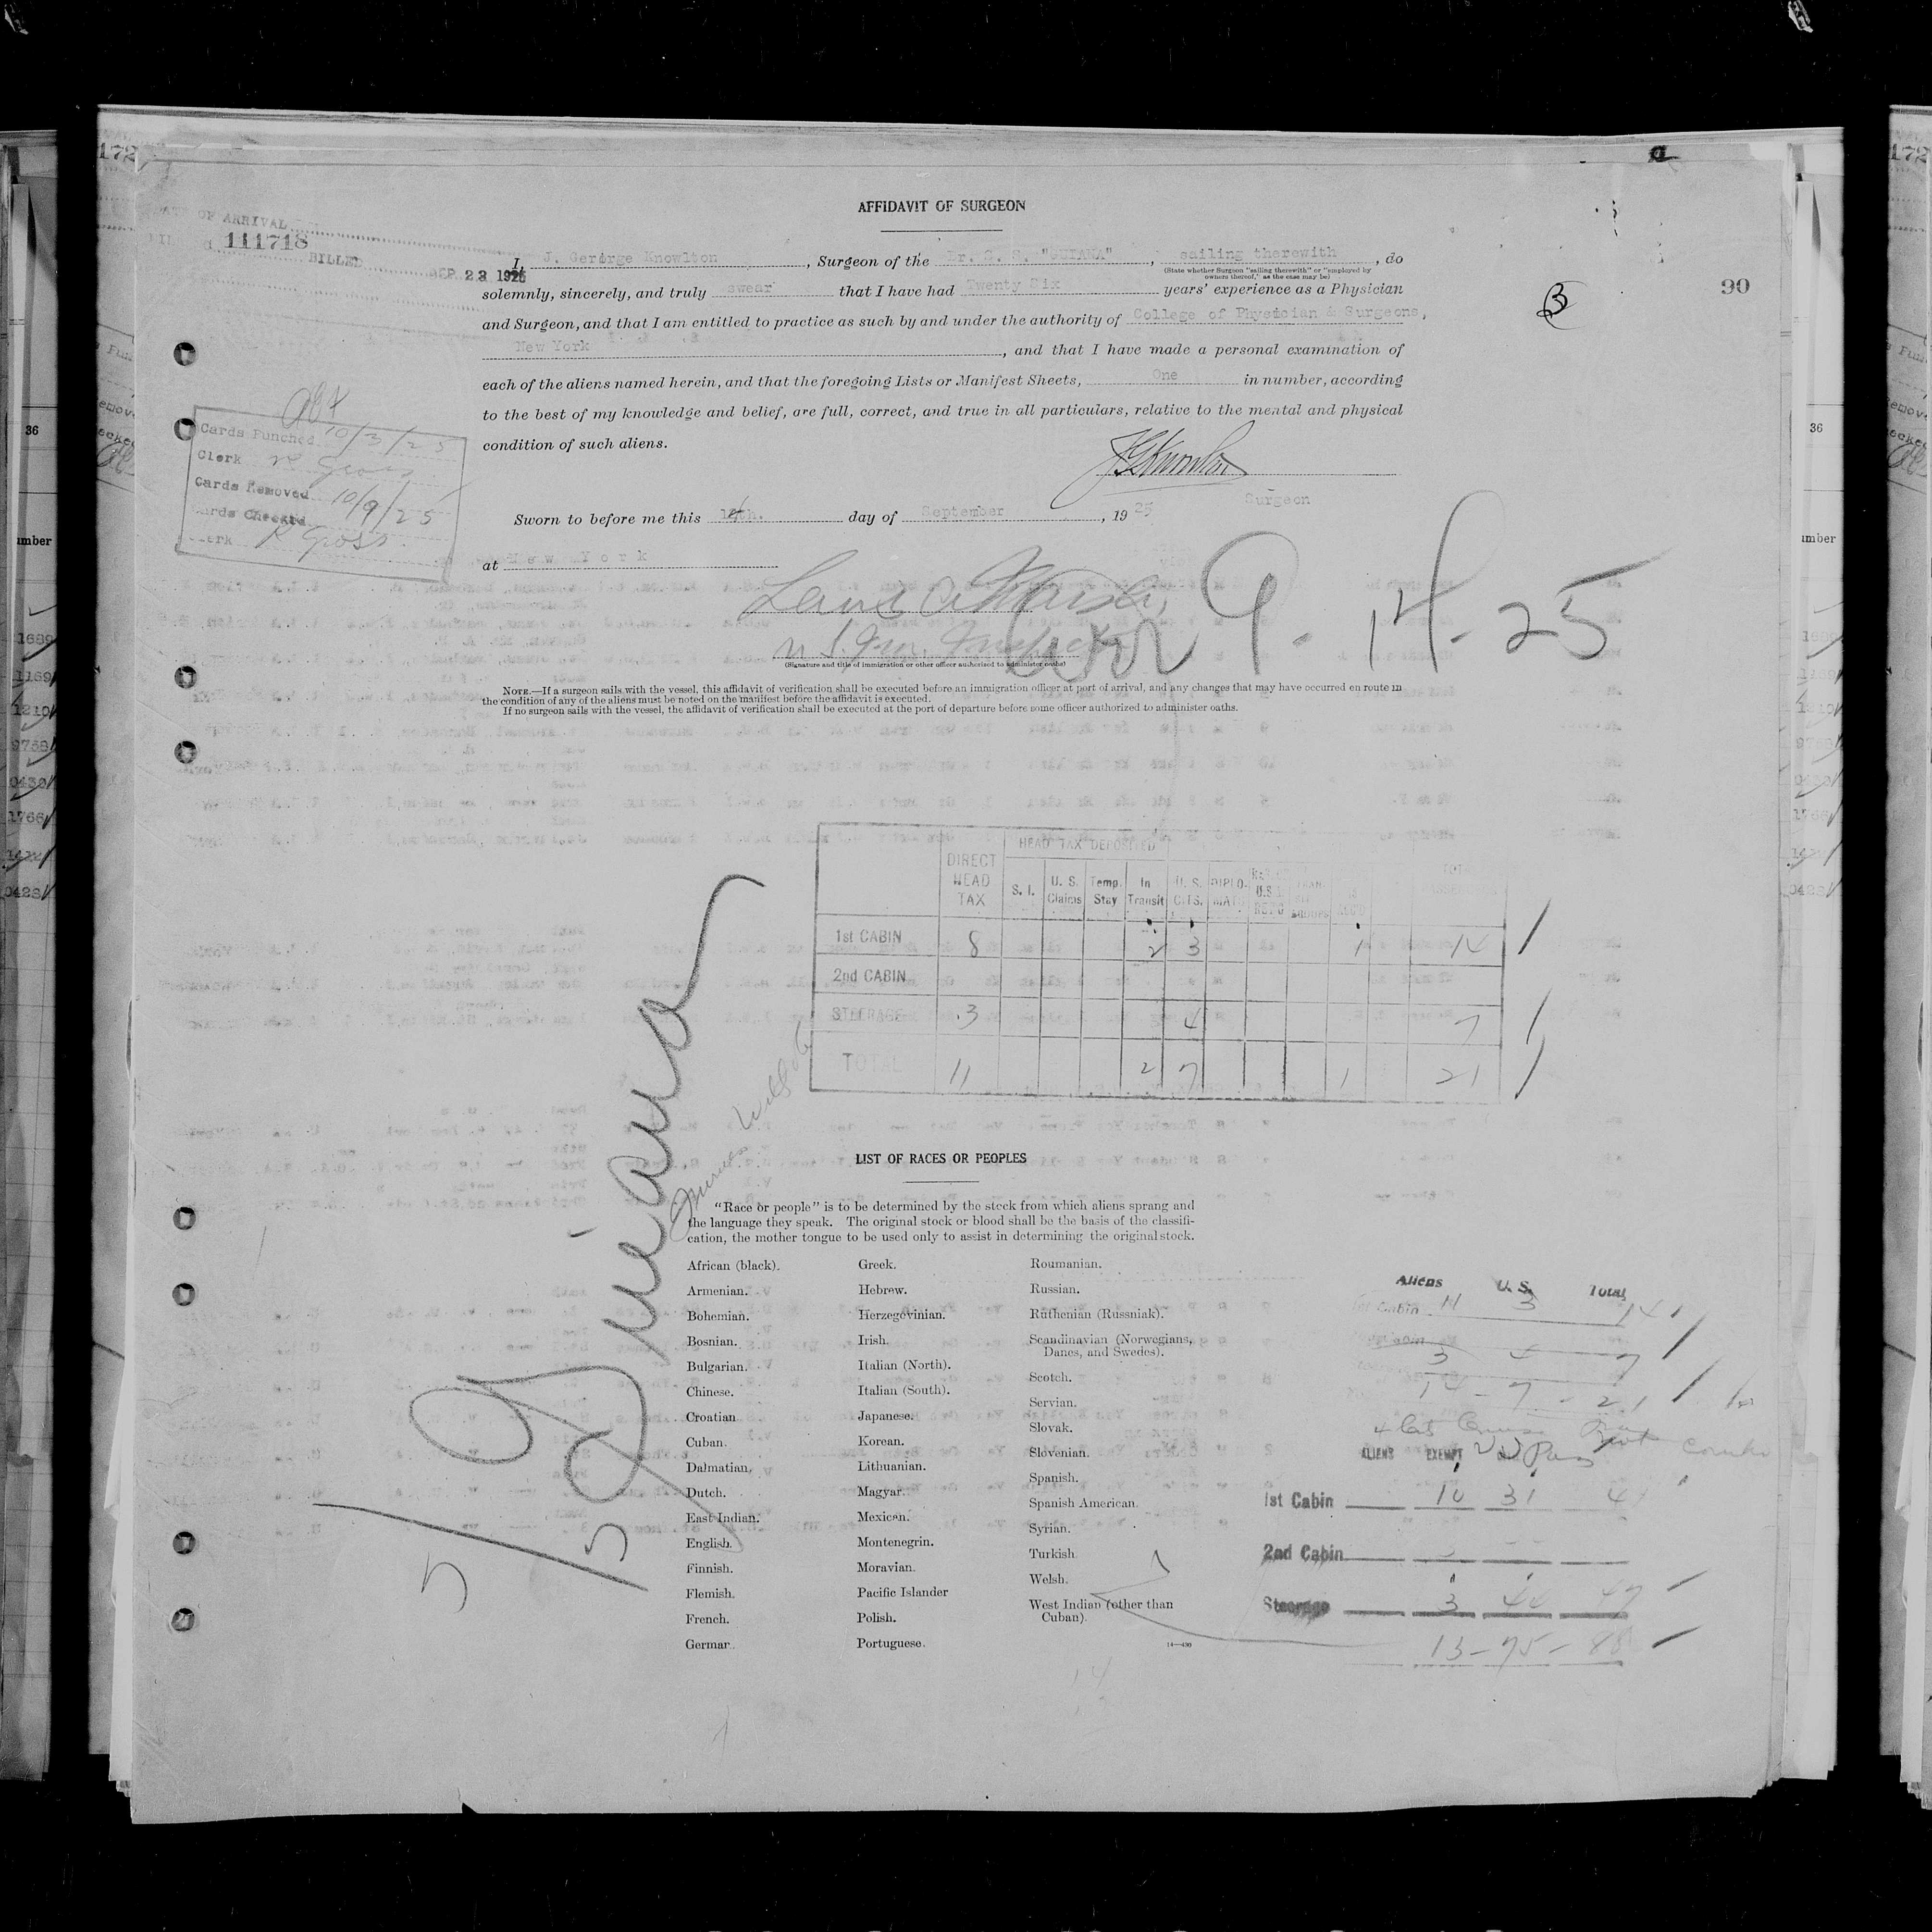 AFFIDAVIT OF SURGEON
DATE OF ARRIVAL
111718
BILLED
SEP 23 1925
I, J. Gerorge Knowlton, Surgeon of the Br. S. S. "GUIANA", sailing therewith, do
(State whether Surgeon "sailing therewith" or "employed by
owners thereof," as the case may be)
solemnly, sincerely, and truly swear that I have had Twenty Six years' experience as a Physician
90
3
and Surgeon, and that I am entitled to practice as such by and under the authority of College of Physician & Surgeons,
New York, and that I have made a personal examination of
each of the aliens named herein, and that the foregoing Lists or Manifest Sheets, One in number, according
to the best of my knowledge and belief, are full, correct, and true in all particulars, relative to the mental and physical
condition of such aliens.
Cards Punched 10/3/25
Clerk R Gross
Cards Removed 10/9/25
Cards Checked
Clerk R Gross
JGKnowlton
Surgeon
Sworn to before me this 14th. day of September, 1925
at New York
9-14-25
(Signature and title of immigration or other officer authorized to administer oaths)
NOTE.—If a surgeon sails with the vessel, this affidavit of verification shall be executed before an immigration officer at port of arrival, and any changes that may have occurred en route in
the condition of any of the aliens must be noted on the manifest before the affidavit is executed.
If no surgeon sails with the vessel, the affidavit of verification shall be executed at the port of departure before some officer authorized to administer oaths.
HEAD TAX DEPOSITED
DIRECT HEAD TAX S. I. U. S. Claims Temp. Stay In Transit U. S. CITS. DIPLOMATS
1st CABIN 8 2 3 1 14
2nd CABIN
STEERAGE 3 4 7
TOTAL 11 2 7 1 21
Guiana
LIST OF RACES OR PEOPLES
"Race or people" is to be determined by the stock from which aliens sprang and
the language they speak. The original stock or blood shall be the basis of the classifi-
cation, the mother tongue to be used only to assist in determining the original stock.
African (black).
Armenian.
Bohemian.
Bosnian.
Bulgarian.
Chinese.
Croatian
Cuban.
Dalmatian.
Dutch.
East Indian.
English.
Finnish.
Flemish.
French.
German.
Greek.
Hebrew.
Herzegovinian.
Irish.
Italian (North).
Italian (South).
Japanese.
Korean.
Lithuanian.
Magyar.
Mexican.
Montenegrin.
Moravian.
Pacific Islander
Polish.
Portuguese.
Roumanian.
Russian.
Ruthenian (Russniak).
Scandinavian (Norwegians,
Danes, and Swedes).
Scotch.
Servian.
Slovak.
Slovenian.
Spanish.
Spanish American.
Syrian.
Turkish
Welsh.
West Indian (other than
Cuban).
14—430
Aliens U. S. Total
Cabin 11 3 14
3 4 7
14 - 7 - 21
ALIENS EXEMPT
1st Cabin 10 31 41
2nd Cabin
Steerage 3 44 47
13 - 75 - 88
14